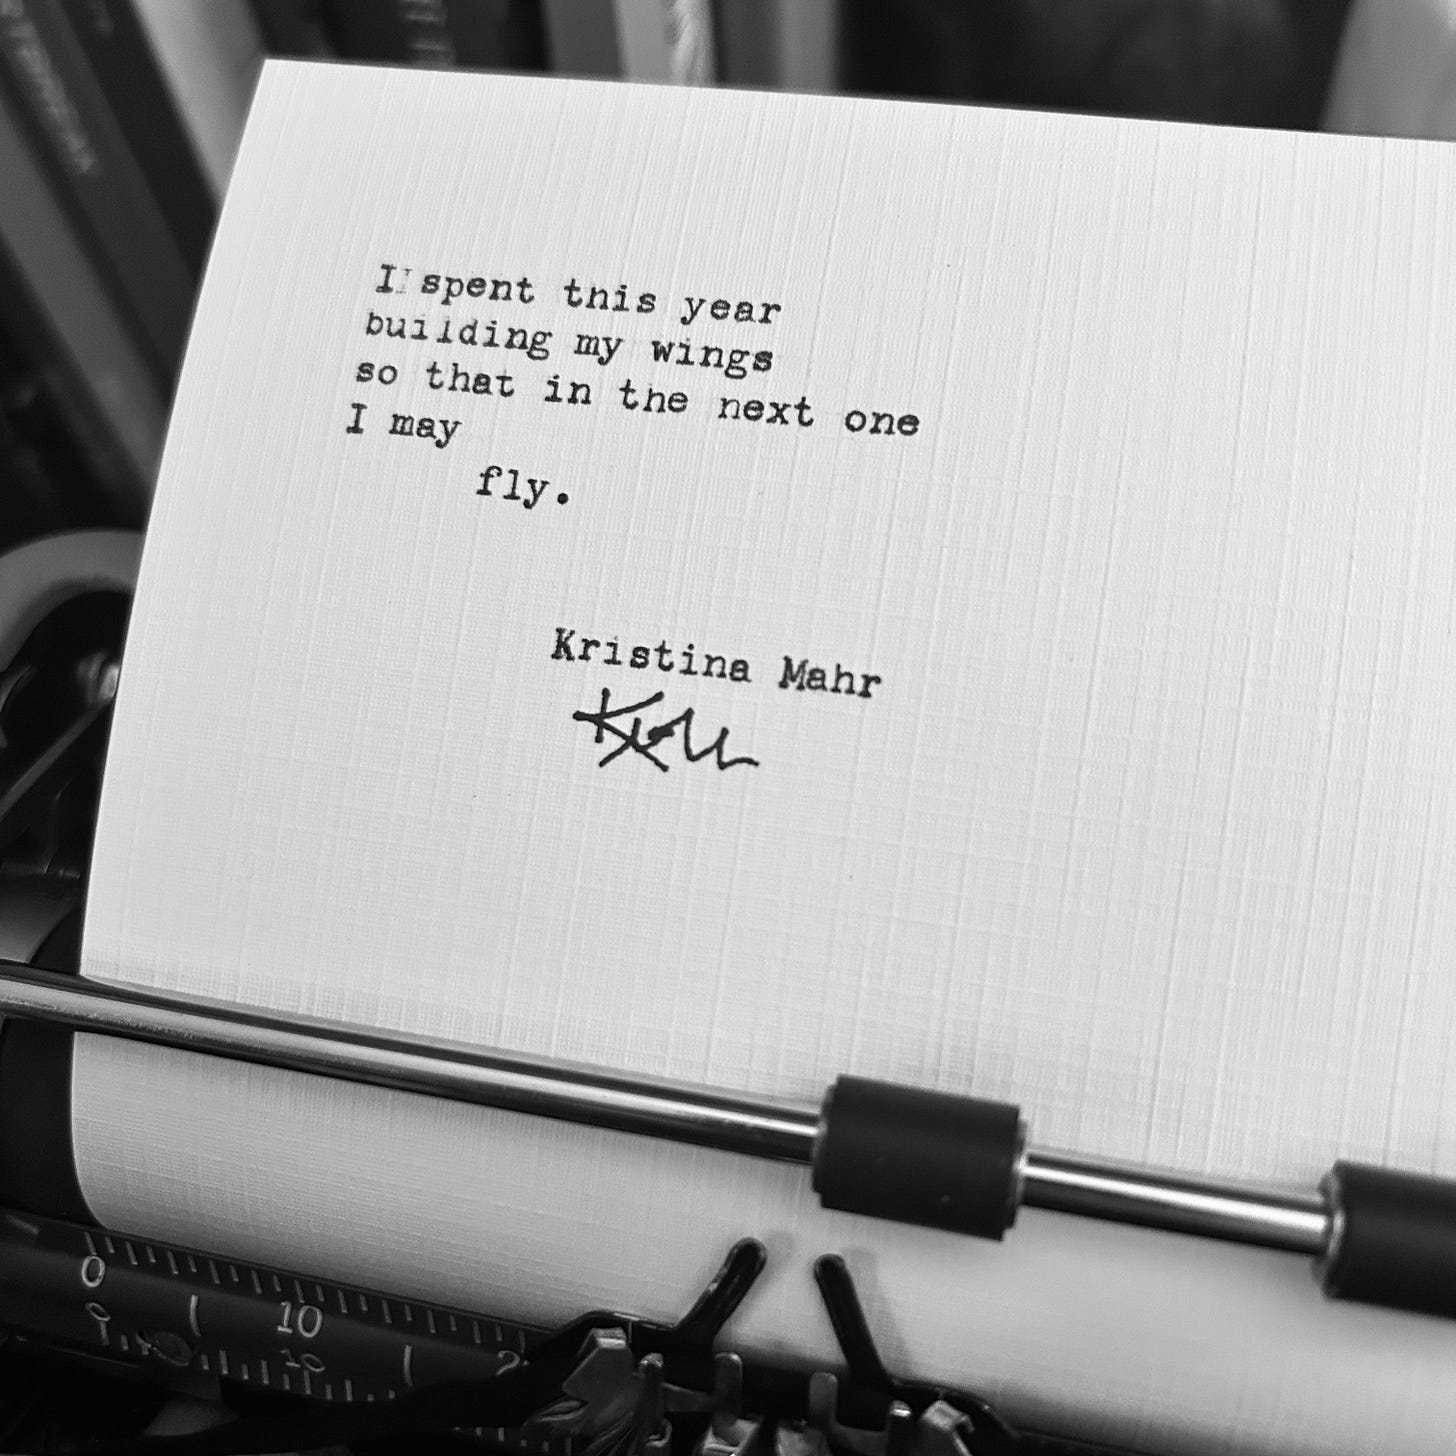 I spent this year
building my wings
so that in the next one
I may
fly.
Kristina Mahr
0 10 2
0 10